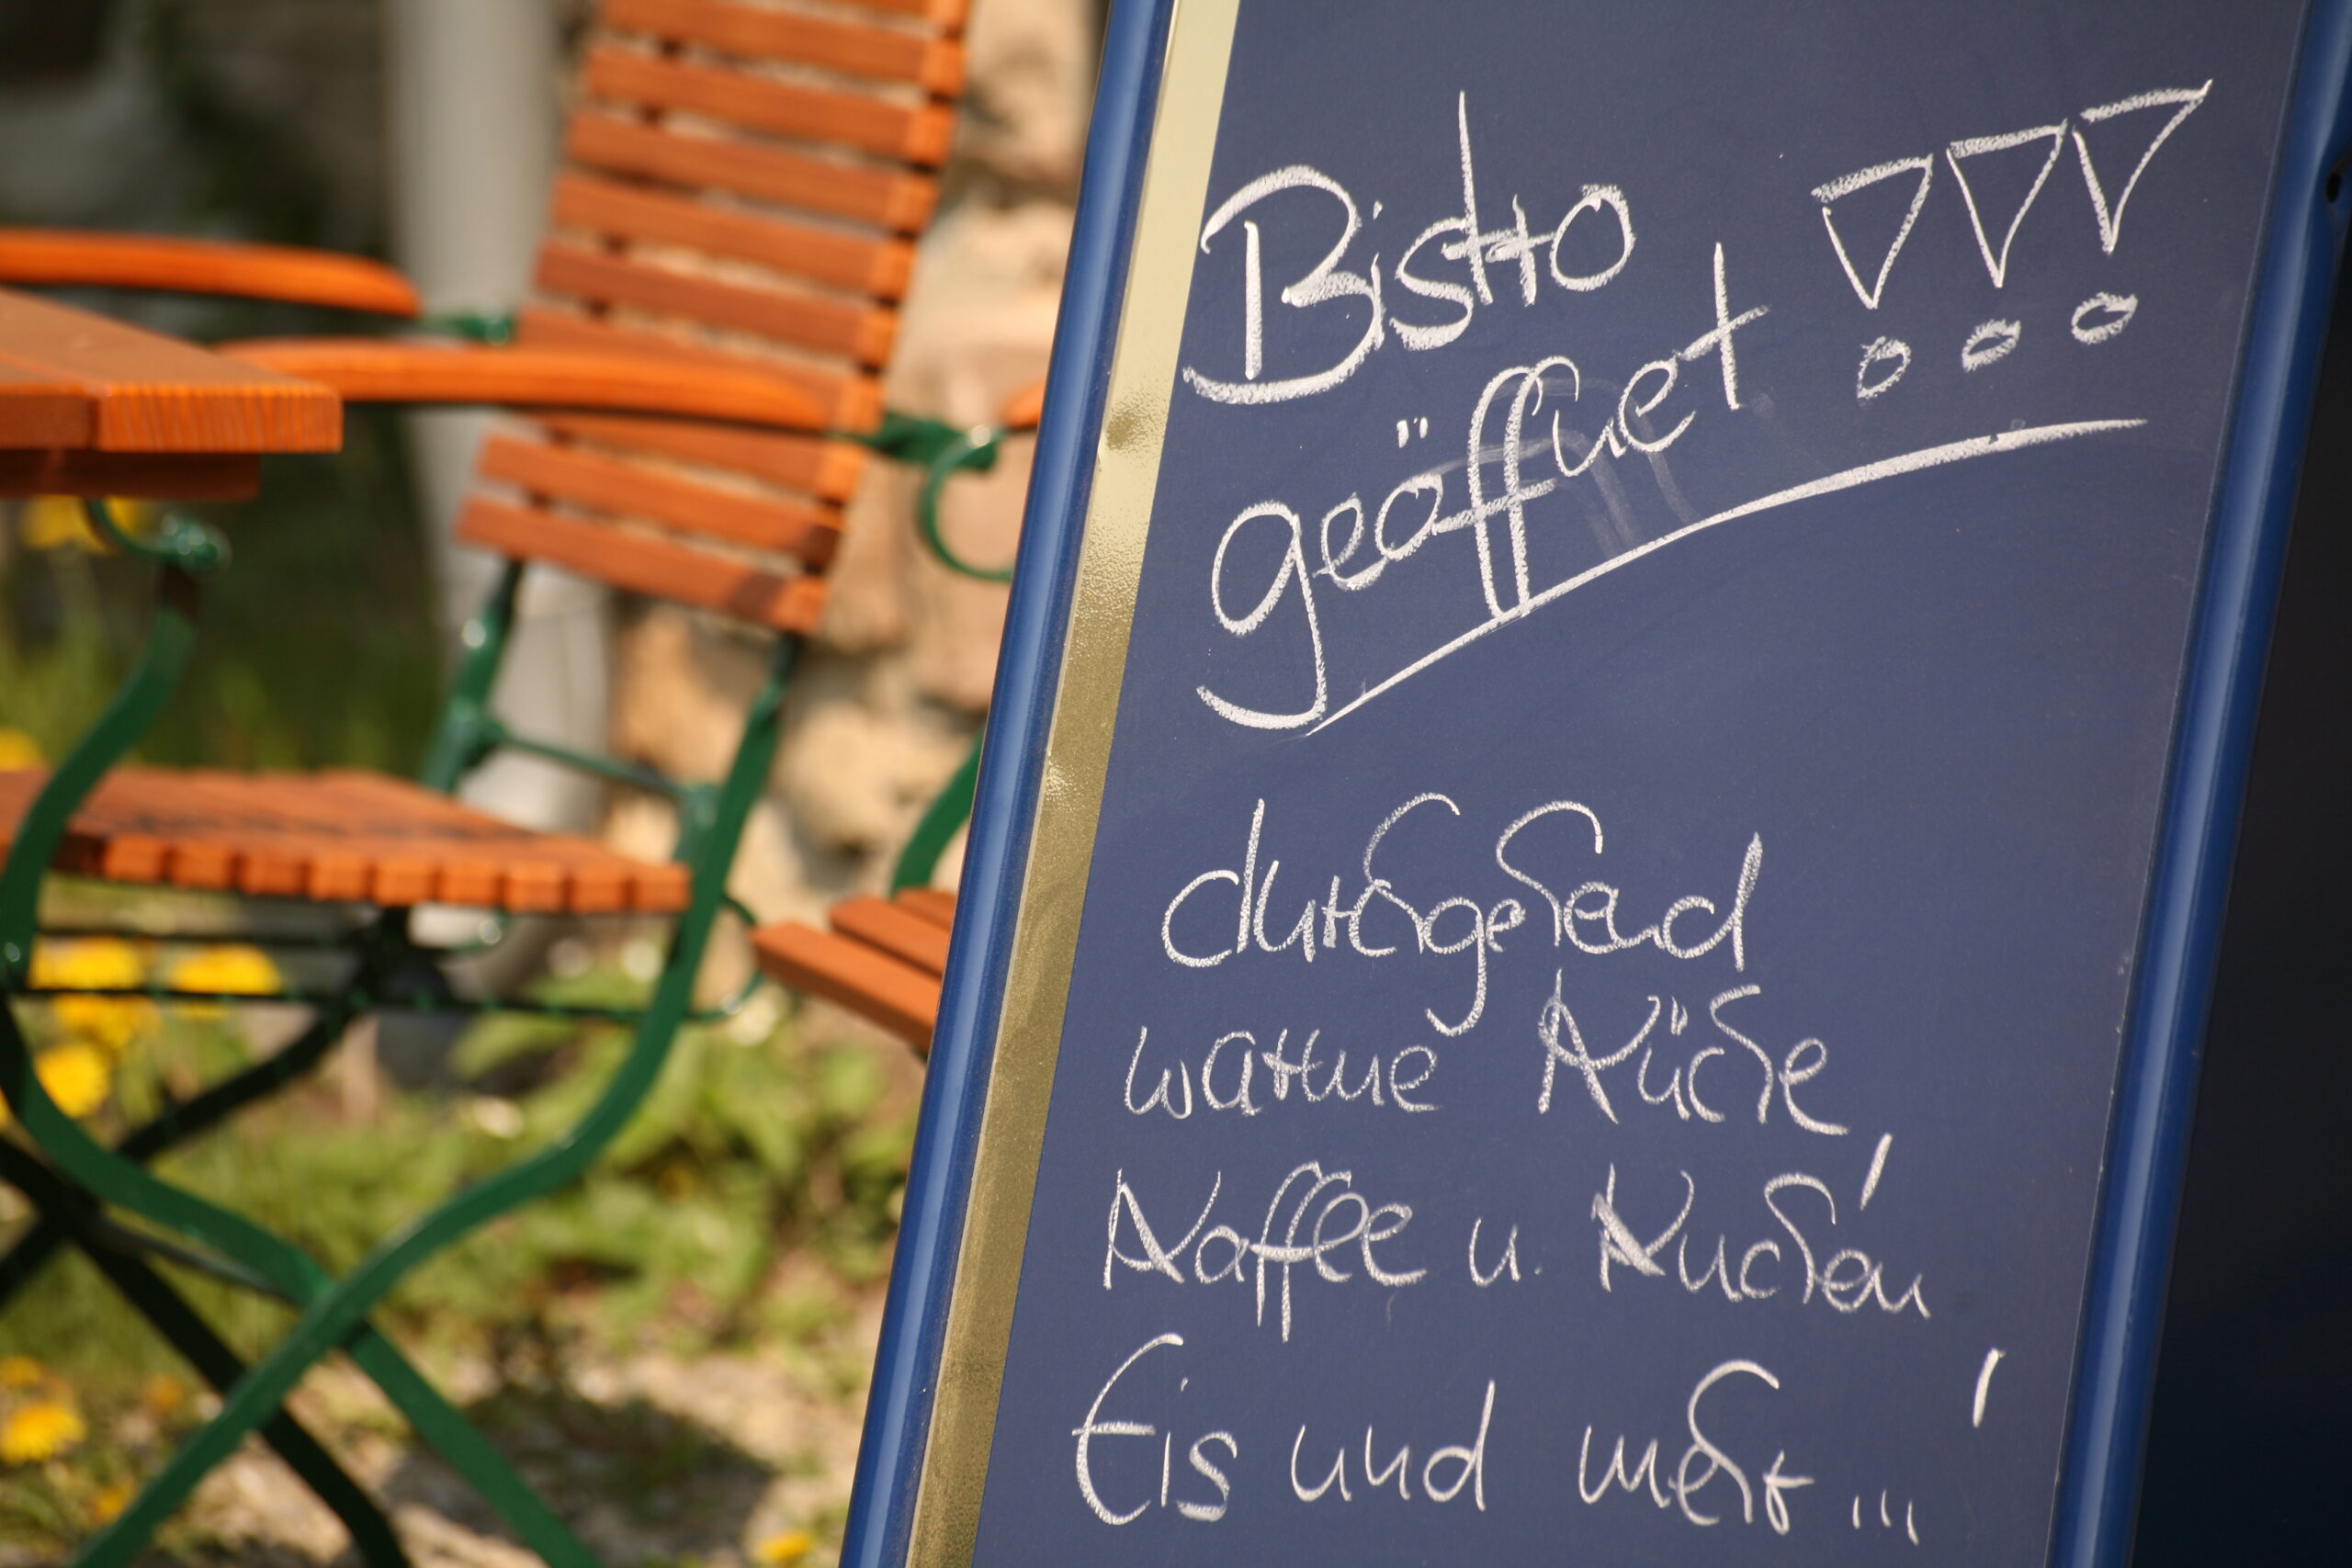 Bistro
geöffnet !!!
durchgehend
warme Küche,
Kaffee u. Kuchen,
Eis und mehr...